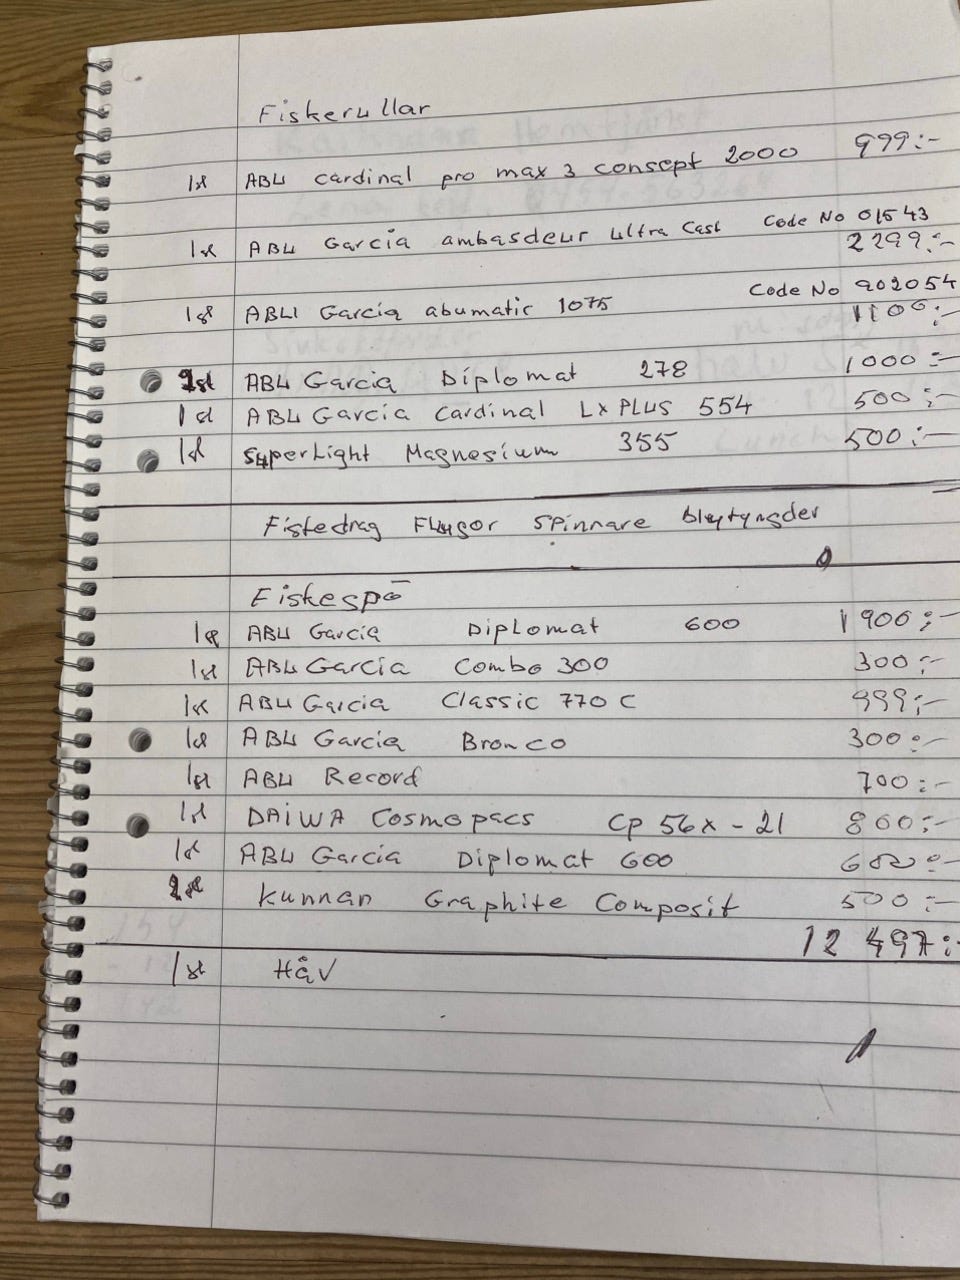 Fiskerullar
999:-
1st ABU cardinal pro max 3 consept 2000
1st ABU Garcia ambasdeur ultra Cast Code No 01543
2299:-
Code No 902054
1st ABU Garcia abumatic 1075 1100:-
st ABU Garcia Diplomat 278 1000:-
1st ABU Garcia Cardinal LX PLUS 554 500:-
1st SuperLight Magnesium 355 500:-
Fiskedrag Flugor Spinnare blytyngder
Fiskespö
1st ABU Garcia Diplomat 600 1900:-
1st ABU Garcia Combo 300 300:-
1st ABU Garcia Classic 770 C 999:-
1st ABU Garcia Bronco 300:-
1st ABU Record 700:-
1st DAIWA Cosmopacs CP 56x-21 800:-
1st ABU Garcia Diplomat 600 600:-
st Kunnan Graphite Composit 500:-
12 497:-
1st Håv